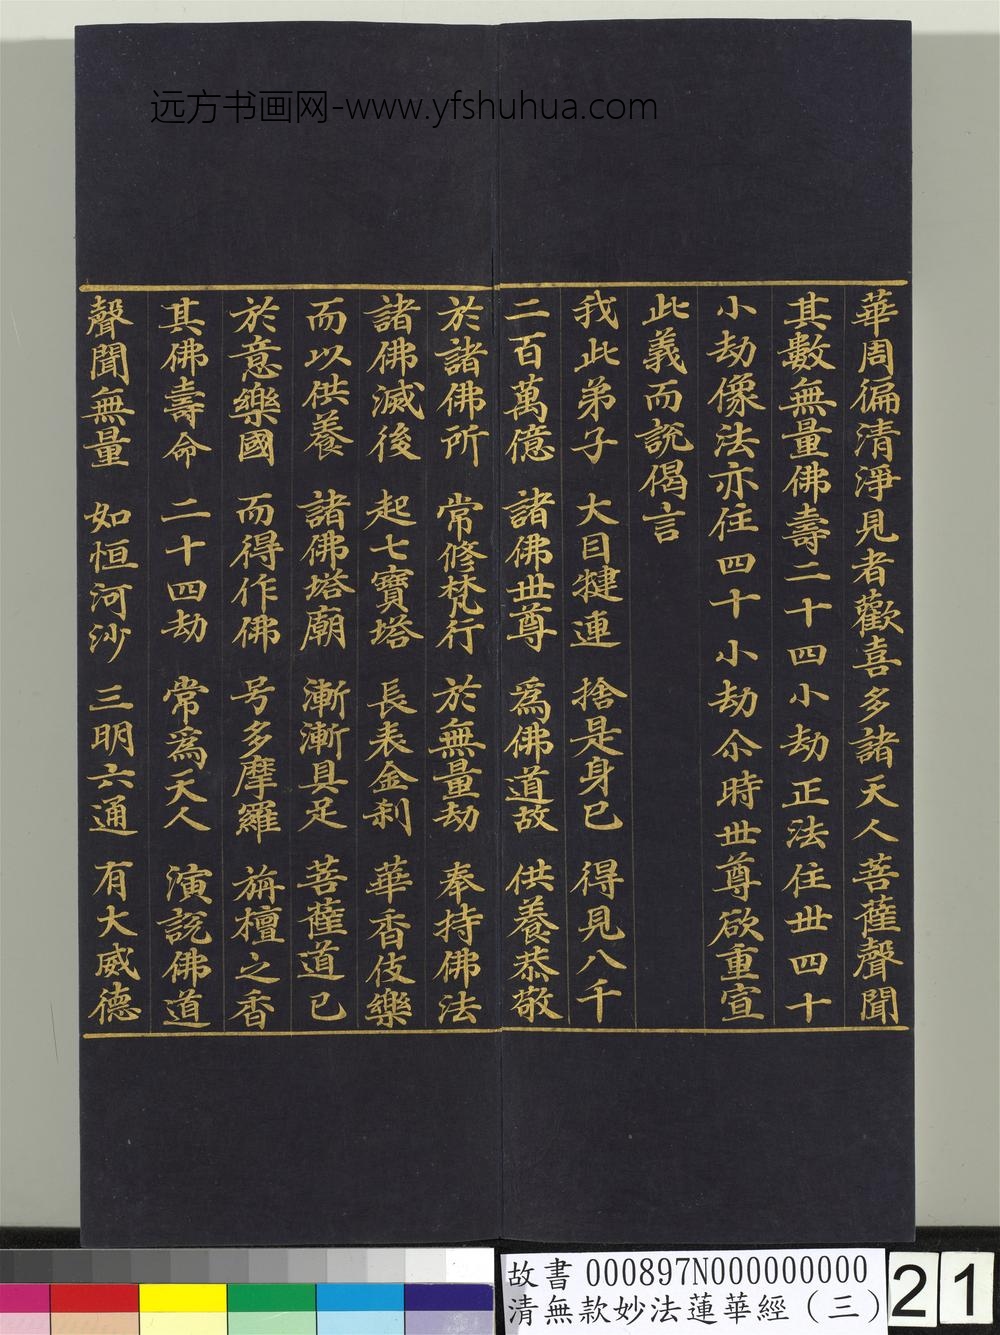 远方书画网-www.yfshuhua.com
華周徧清淨見者歡喜多諸天人菩薩聲聞
其數無量佛壽二十四小劫正法住世四十
小劫像法亦住四十小劫尒時世尊欲重宣
此義而說偈言
我此弟子 大目犍連 捨是身已 得見八千
二百萬億 諸佛世尊 爲佛道故 供養恭敬
於諸佛所 常修梵行 於無量劫 奉持佛法
諸佛滅後 起七寶塔 長表金刹 華香伎樂
而以供養 諸佛塔廟 漸漸具足 菩薩道已
於意樂國 而得作佛 号多摩羅 旃檀之香
其佛壽命 二十四劫 常爲天人 演說佛道
聲聞無量 如恒河沙 三明六通 有大威德
故書 000897N000000000
清無款妙法蓮華經（三）
21